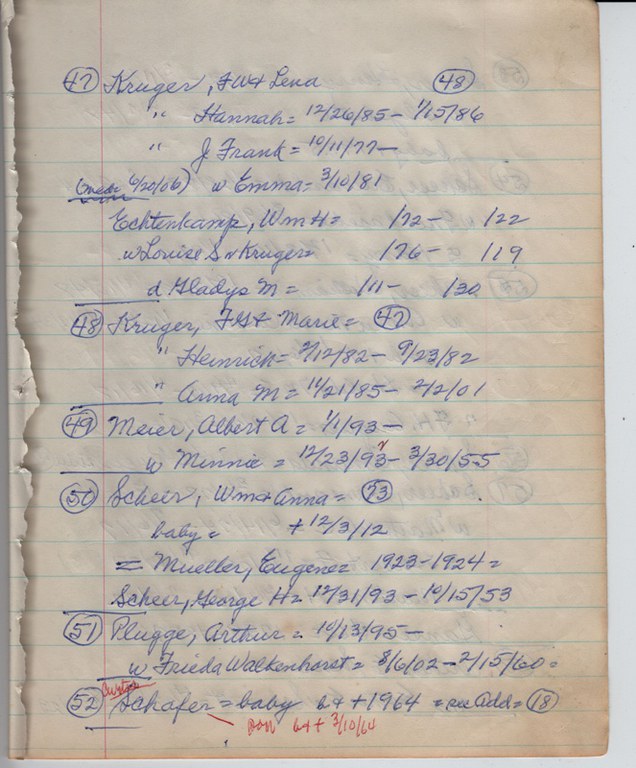 47 Kruger, FW+ Lena 48
" Hannah = 12/26/85 - 1/15/86
" J Frank = 10/11/77 -
6/20/06) w Emma = 3/10/81
Echtenkamp, Wm H = /72 - /22
w Louise S v Kruger = /76 - /19
d Gladys M = /11 - /30
48 Kruger, FG+ Marie = 47
" Heinrich = 2/12/82 - 9/23/82
" Anna M = 11/21/85 - 2/2/01
49 Meier, Albert A = 1/1/93 -
w Minnie = 12/23/93 - 3/30/55
50 Scheer, Wm + Anna = 73
baby = +12/3/12
= Mueller, Eugene = 1923-1924 =
Scheer, George H = 12/31/93 - 10/15/53
51 Plugge, Arthur = 10/13/95 -
w Frieda Walkenhorst = 8/6/02 - 2/15/60 =
52 Schafer = baby b+ +1964 = see Add = 18
son b+ + 3/10/64